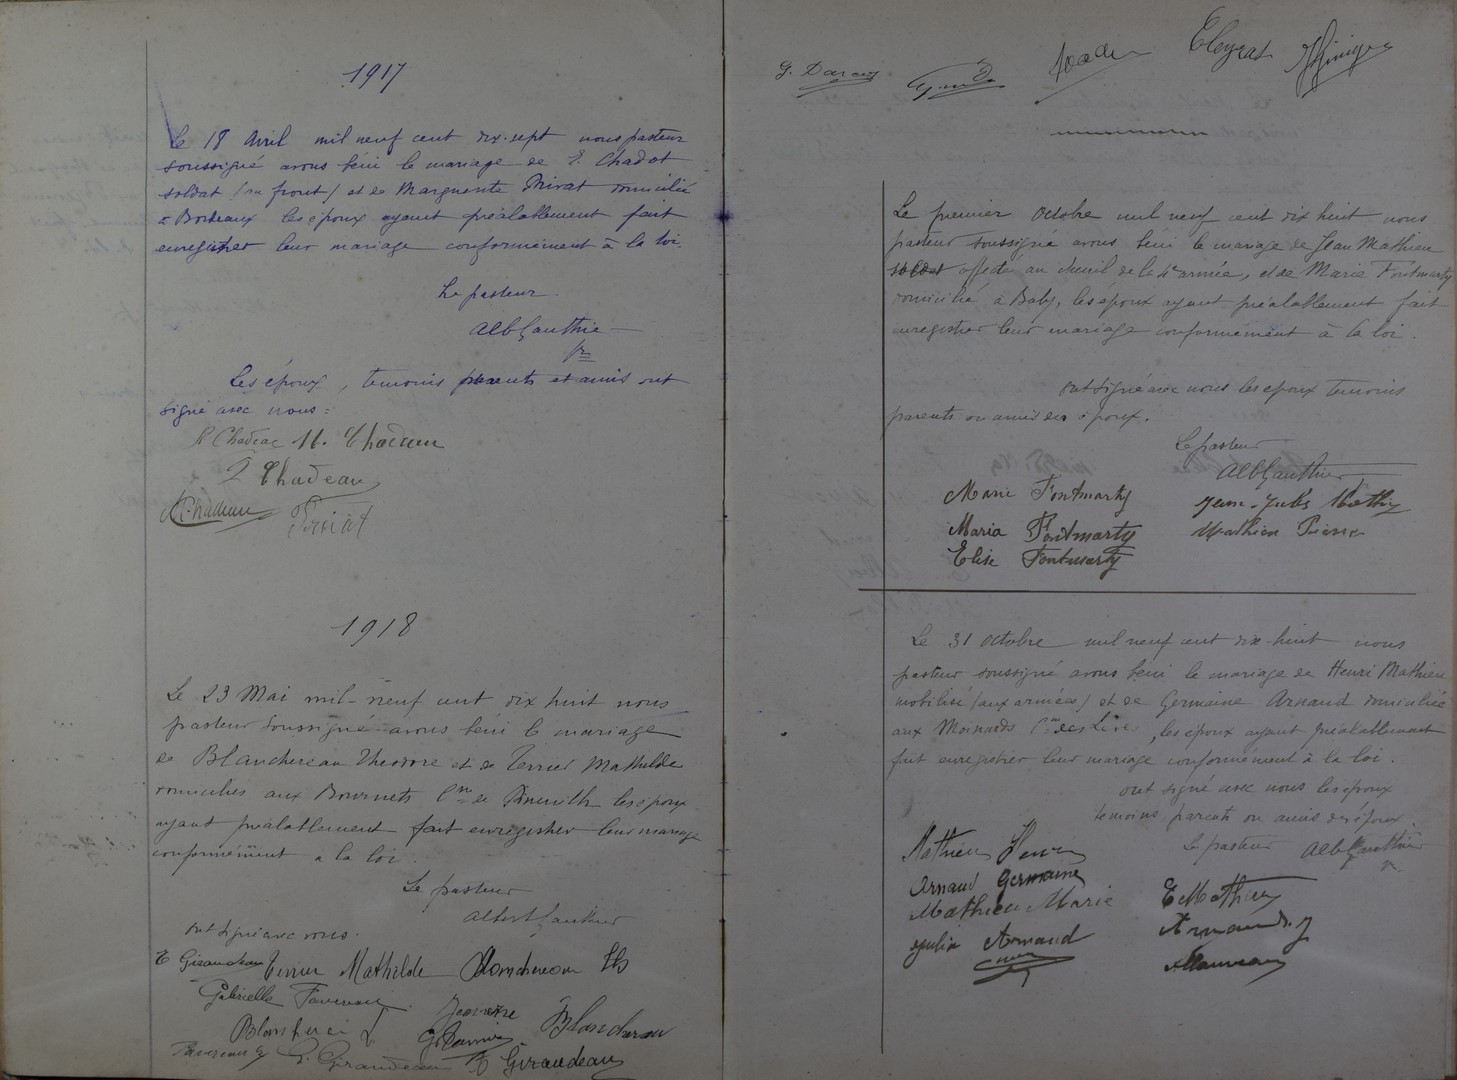 1917
Le 18 Avril mil neuf cent dix-sept nous pasteur
soussigné avons béni le mariage de E. Chadot
soldat (au front) et de Marguerite domicilié
à Bordeaux les époux ayant préalablement fait
enregistrer leur mariage conformément à la loi.
Le pasteur
Alb Gauthier
Les époux, temoins parents et amis ont
signé avec nous :
Chadeau
1918
Le 23 Mai mil-neuf cent dix huit nous
pasteur soussigné avons béni le mariage
de Blanchereau Theodore et de Terrier Mathilde
domiciliés aux Bournets Cne de les époux
ayant préalablement fait enregistrer leur mariage
conformément a la loi.
Le pasteur
Albert Gauthier
ont signé avec nous.
E Giraudeau Terrier Mathilde Blanchereau Th
Gabrielle
Jeanne
Blanchereau
G. Giraudeau E Giraudeau
G. Darcey
Le premier Octobre mil neuf cent dix huit nous
pasteur soussigné avons béni le mariage de Jean Mathieu
soldat affecté au chenil de la 4e armée, et de Marie Fontmarty
domicilié à Baby, les époux ayant préalablement fait
enregistrer leur mariage conformément à la loi.
ont signé avec nous les époux temoins
parents ou amis des époux.
Le pasteur
Alb Gauthier
Marie Fontmarty
Jean-Jules Mathieu
Maria Fontmarty
Mathieu Pierre
Elise Fontmarty
Le 31 Octobre mil neuf cent dix-huit nous
pasteur soussigné avons béni le mariage de Henri Mathieu
mobilisé (aux armées) et de Germaine Arnaud domiciliée
aux Moinards Cne des Lèves, les époux ayant préalablement
fait enregistrer leur mariage conformément à la loi.
ont signé avec nous les époux
temoins parents ou amis des époux.
Le pasteur Alb Gauthier
Mathieu Henri
Arnaud Germaine
Mathieu Marie
E Mathieu
Arnaud
Arnaud J